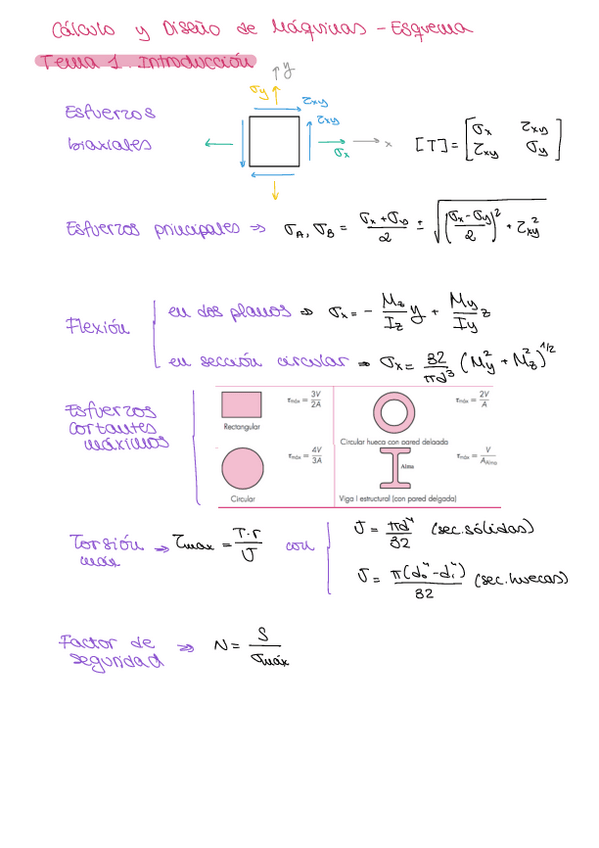 Cálculo y Diseño de Máquinas - Esquema
Tema 1. Introducción
y
σy
τxy
Esfuerzos
τxy
biaxiales
σx
x
[T] = [σx τxy
τxy σy]
Esfuerzos principales ⇒ σA, σB = (σx + σy)/2 ± √(((σx - σy)/2)² + τxy²)
Flexión
en dos planos ⇒ σx = - Mz/Iz y + My/Iy z
en sección circular ⇒ σx = 32/πd³ (My² + Mz²)^1/2
Esfuerzos
cortantes
máximos
τmáx = 3V/2A
Rectangular
τmáx = 2V/A
Circular hueca con pared delgada
τmáx = 4V/3A
Circular
Alma
τmáx = V/AAlma
Viga I estructural (con pared delgada)
Torsión
máx
⇒ τmax = T·r/J con
J = πd⁴/32 (sec. sólidas)
J = π(do⁴ - di⁴)/32 (sec. huecas)
Factor de
seguridad
⇒ N = S/σmáx